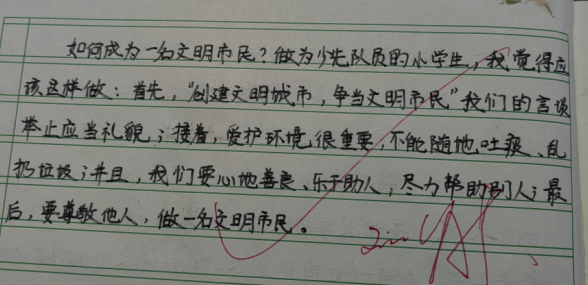 如何成为一名文明市民？做为少先队员的小学生，我觉得应
该这样做：首先，“创建文明城市，争当文明市民”我们的言谈
举止应当礼貌；接着，爱护环境很重要，不能随地吐痰、乱
扔垃圾；并且，我们要心地善良、乐于助人，尽力帮助别人；最
后，要尊敬他人，做一名文明市民。